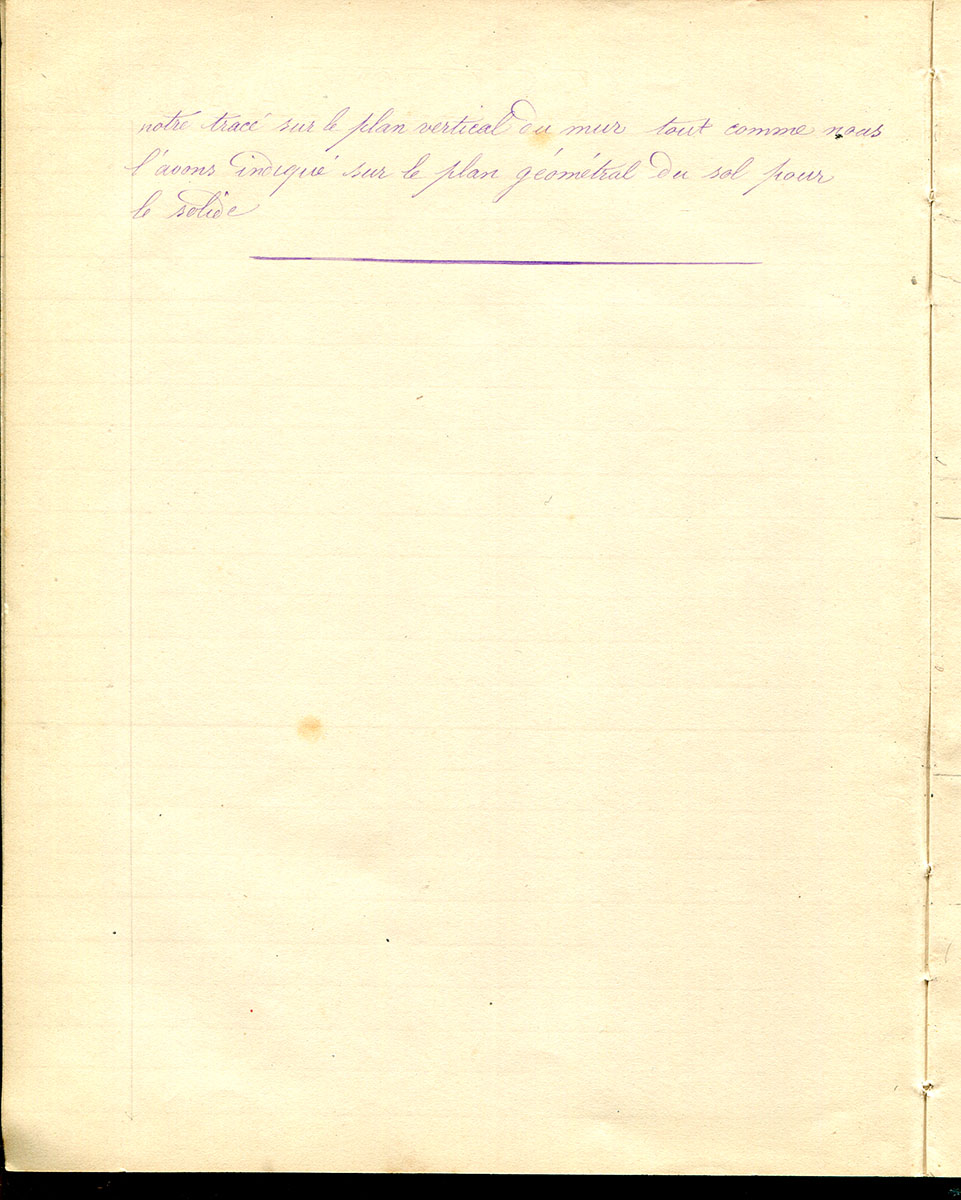 notre tracé sur le plan vertical du mur tout comme nous
l'avons indiqué sur le plan géométral du sol pour
le solide